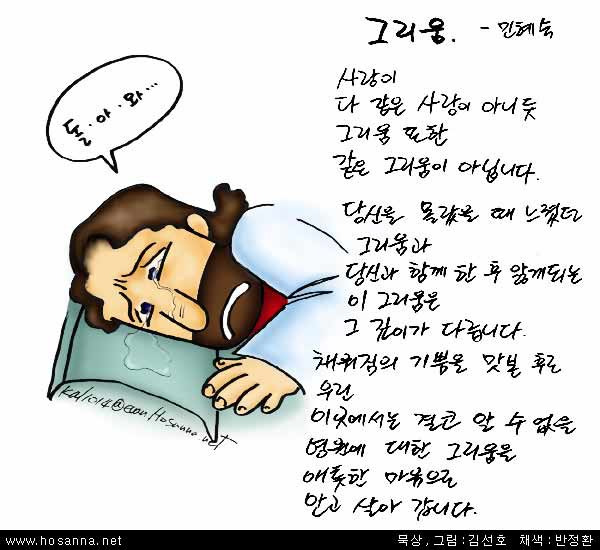 그리움. - 민혜숙
돌·아·와...
사랑이
다 같은 사랑이 아니듯
그리움 또한
같은 그리움이 아닙니다.
당신을 몰랐을 때 느꼈던
그리움과
당신과 함께 한 후 앓게되는
이 그리움은
그 깊이가 다릅니다.
채워짐의 기쁨을 맛본 후로
우린
이곳에서는 결코 알 수 없을
영원에 대한 그리움을
애틋한 마음으로
안고 살아 갑니다.
Hosanna.net
www.hosanna.net
묵상, 그림 : 김선호 채색 : 반정환